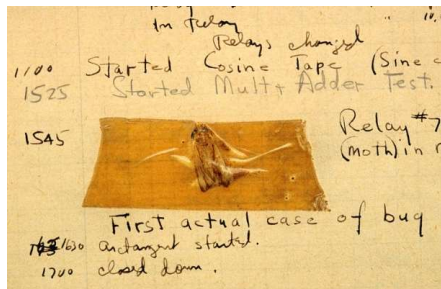 In relay
Relays changed
1100 Started Cosine Tape (Sine c
1525 Started Mult + Adder Test.
1545 Relay #7
(moth) in r
First actual case of bug
1630 arctangent started.
1700 closed down.